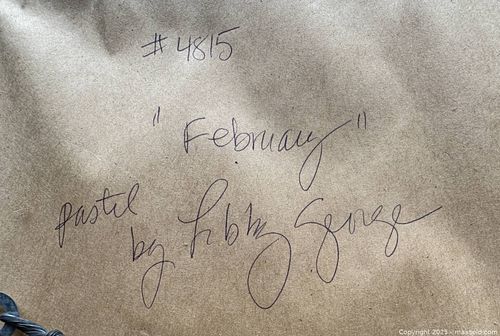 # 4815
" February "
pastel
by Libby George
Copyright 2025 - maxsold.com